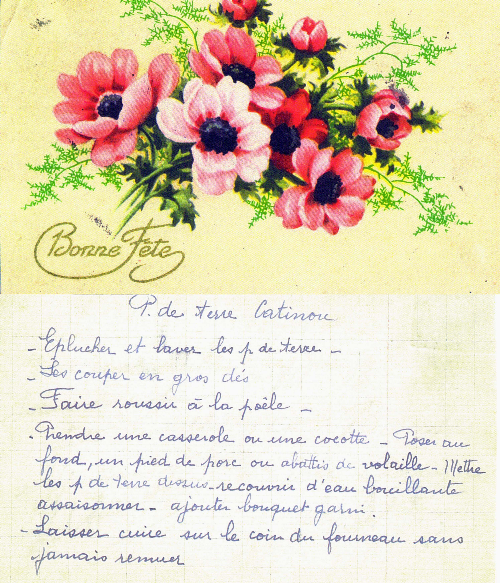 Bonne Fête
P. de terre Catinou
- Eplucher et laver les p de terre -
- Les couper en gros dés
- Faire roussir à la poêle -
- Prendre une casserole ou une cocotte - Poser au
fond, un pied de porc ou abattis de volaille - Mettre
les p de terre dessus - recouvrir d'eau bouillante
assaisonner - ajouter bouquet garni.
- Laisser cuire sur le coin du fourneau sans
jamais remuer